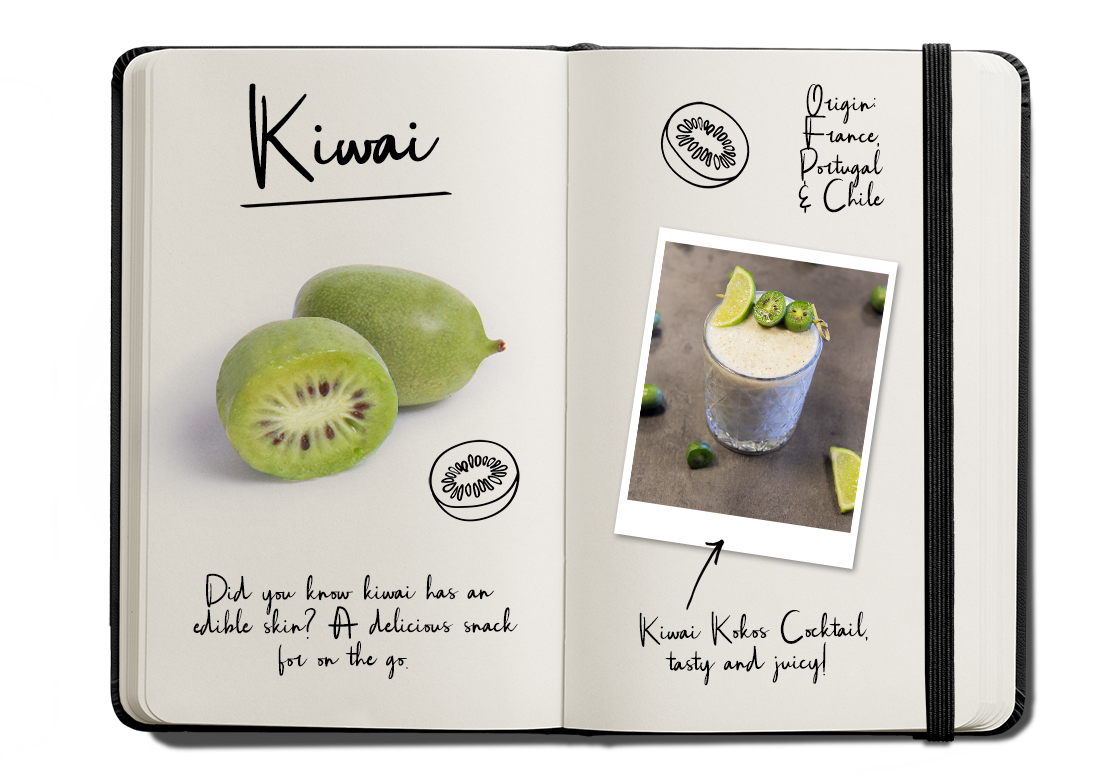 Kiwai
Did you know kiwai has an
edible skin? A delicious snack
for on the go.
Origin:
France,
Portugal
& Chile
Kiwai Kokos Cocktail,
tasty and juicy!